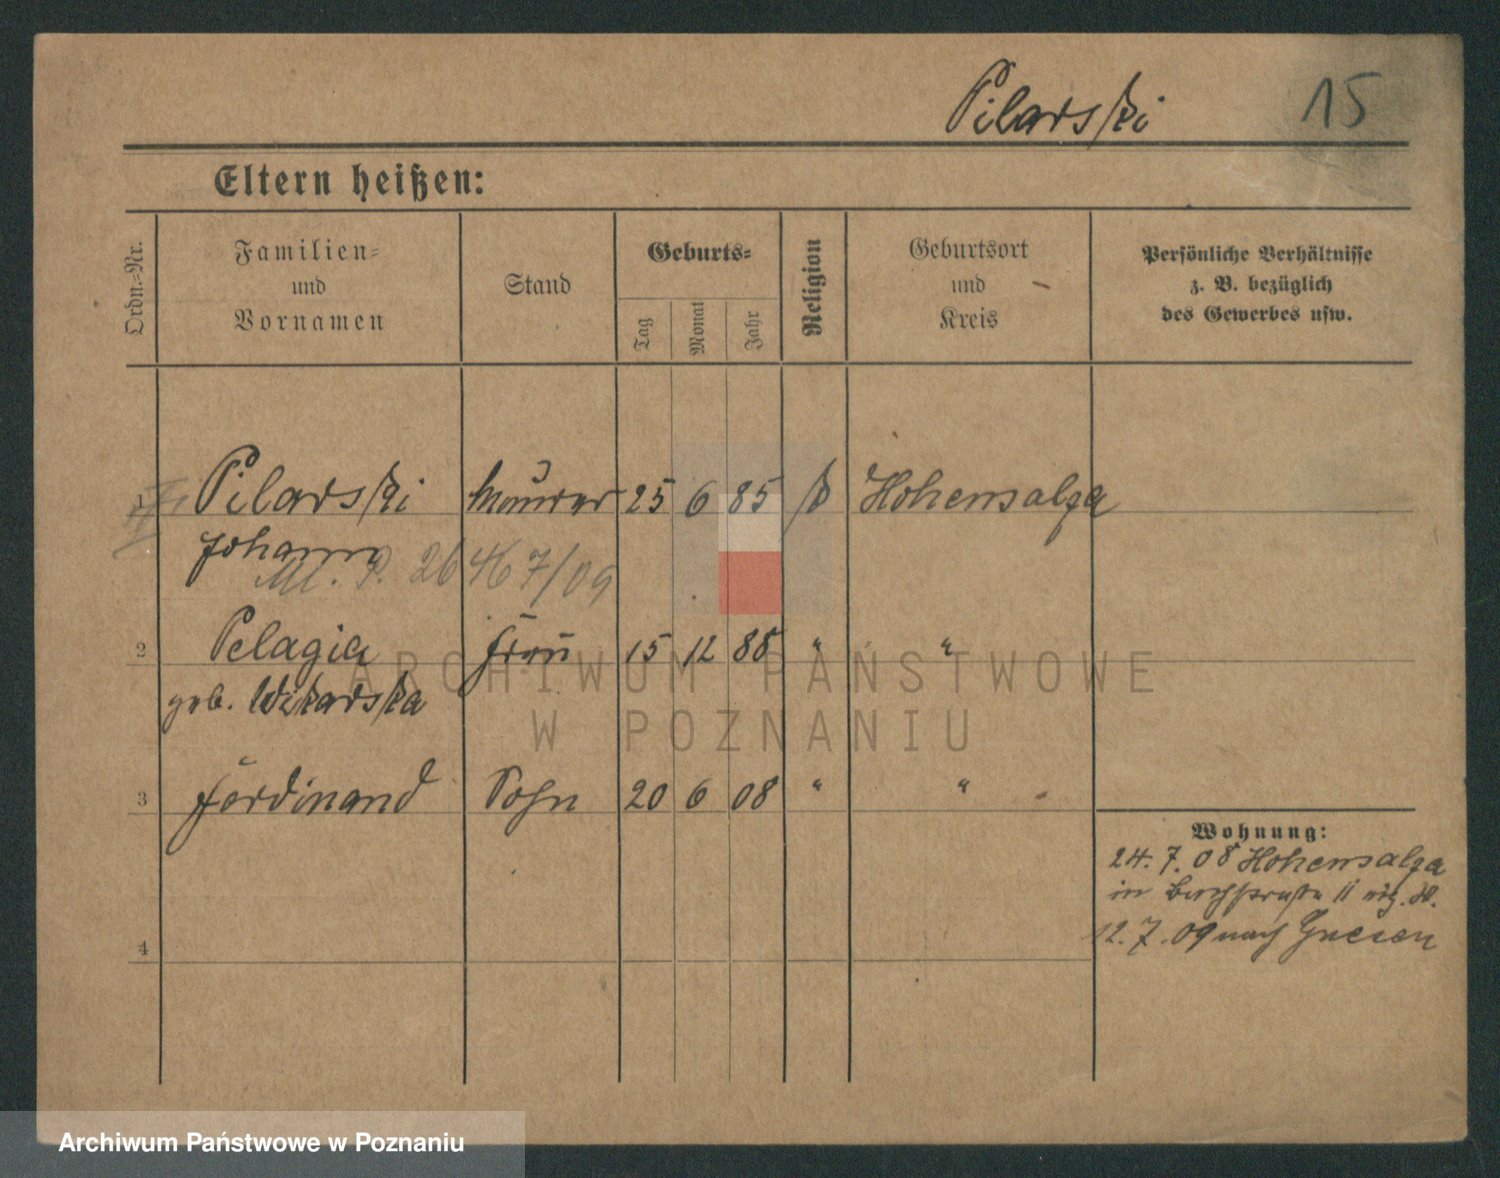 Pilarski 15
Eltern heißen:
Ordn.-Nr.
Familien-
und
Vornamen
Stand
Geburts-
Tag
Monat
Jahr
Religion
Geburtsort
und
Kreis
Persönliche Verhältnisse
z. B. bezüglich
des Gewerbes usw.
1 Pilarski Maurer 25 6 85 k Hohensalza
Johann
26467/09
2 Pelagia Frau 15 12 88 " "
geb. Wikarska
3 Ferdinand Sohn 20 6 08 " "
4
Wohnung:
24. 7. 08 Hohensalza
in 11
12. 7. 09 nach Gnesen
ARCHIWUM PAŃSTWOWE
W POZNANIU
Archiwum Państwowe w Poznaniu